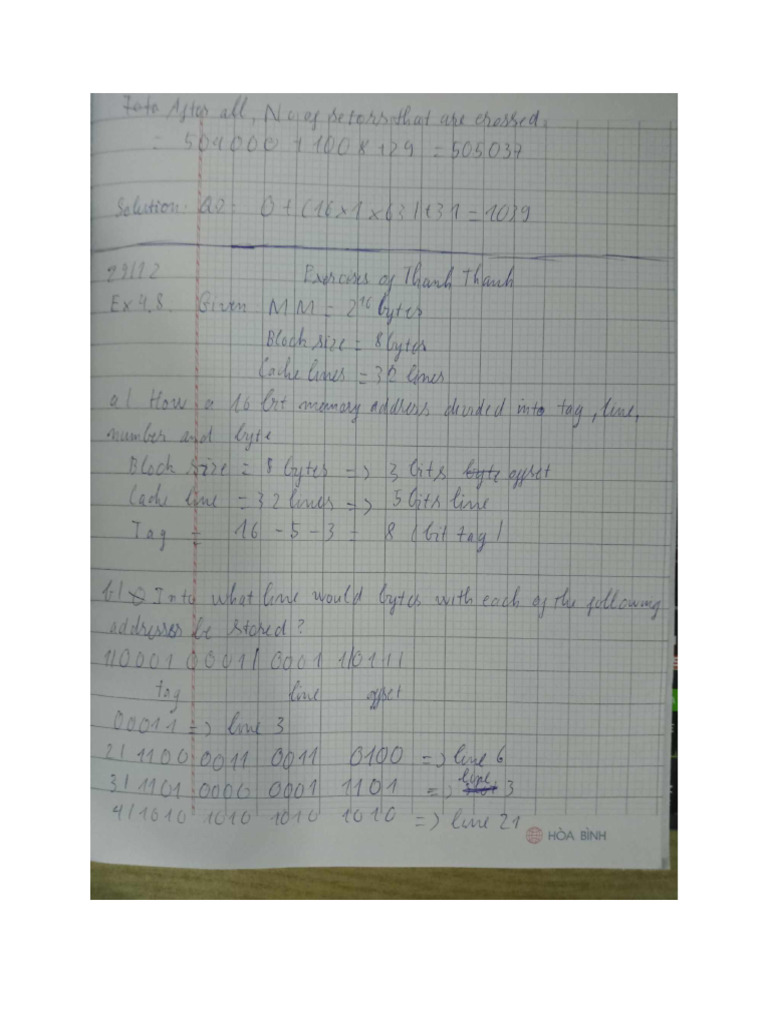 After all, No of sectors that are crossed.
= 504000 + 1008 + 29 = 505037
Solution: Q2: 0 + (16 x 1 x 63) + 31 = 1039
29/12 Exercises of Thanh Thanh
Ex 4.8. Given MM = 2^16 bytes
Block size = 8 bytes
Cache lines = 32 lines
a) How a 16 bit memory address divided into tag, line,
number and byte
Block Size = 8 bytes => 3 bits byte offset
Cache line = 32 lines => 5 bits line
Tag = 16 - 5 - 3 = 8 (bit tag)
b) Into what line would bytes with each of the following
addresses be stored?
1) 0001 0001 | 0001 1 | 011
tag line offset
00011 => line 3
2) 1100 0011 0011 0100 => line 6
3) 1101 0000 0001 1101 => line 3
4) 1010 1010 1010 1010 => line 21
HÒA BÌNH